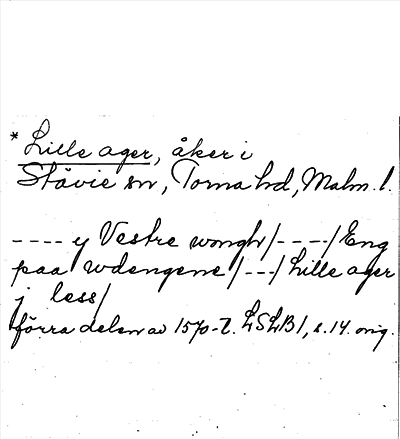 * Lille ager, åker i
Stävie sn, Torna hd, Malm. l.
---- y Vestre wongh/----/Eng
paa wdengene/---/Lille ager
j less/
förra delen av 1570-t. LSLB1, s. 14. orig.